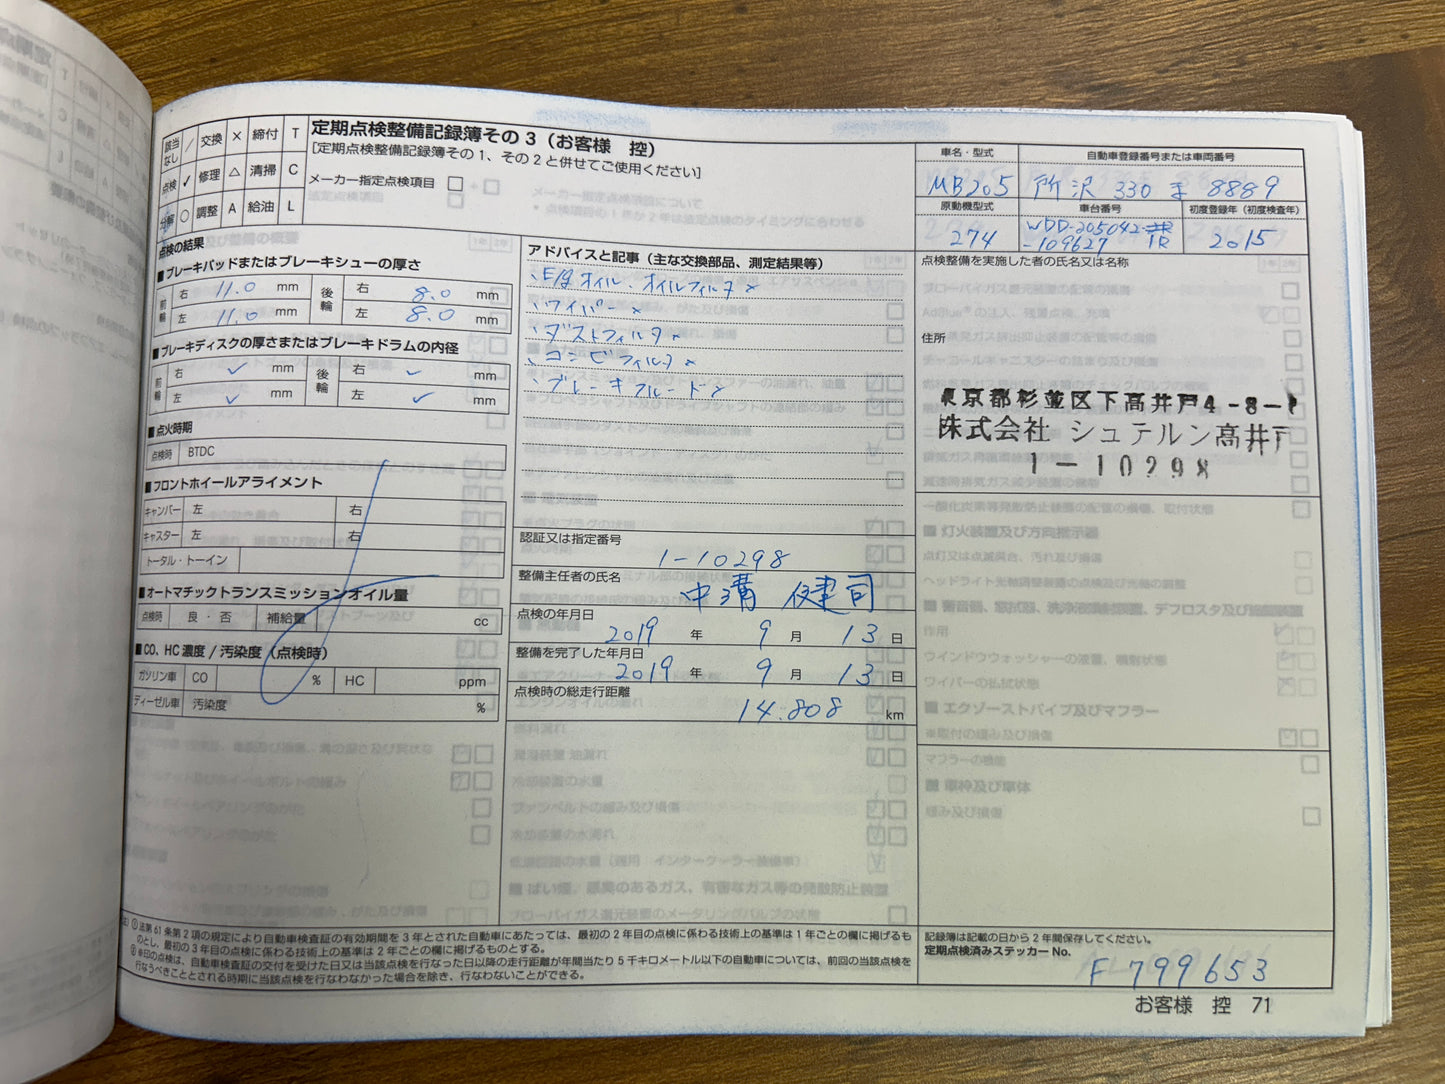 該当なし / 交換 × 締付 T
点検 ✓ 修理 △ 清掃 C
分解 ○ 調整 A 給油 L
定期点検整備記録簿その3（お客様 控）
［定期点検整備記録簿その1、その2と併せてご使用ください］
メーカー指定点検項目 □
車名・型式
MB205
自動車登録番号または車両番号
所沢 330 8889
原動機型式
274
車台番号
WDD-205042-
-109627
初度登録年（初度検査年）
2015
点検の結果
■ ブレーキパッドまたはブレーキシューの厚さ
前輪 右 11.0 mm 後輪 右 8.0 mm
左 11.0 mm 左 8.0 mm
■ ブレーキディスクの厚さまたはブレーキドラムの内径
前輪 右 ✓ mm 後輪 右 ✓ mm
左 ✓ mm 左 ✓ mm
■ 点火時期
点検時 BTDC
■ フロントホイールアライメント
キャンバー 左 右
キャスター 左 右
トータル・トーイン
■ オートマチックトランスミッションオイル量
点検時 良・否 補給量 cc
■ CO、HC濃度/汚染度（点検時）
ガソリン車 CO % HC ppm
ディーゼル車 汚染度 %
アドバイスと記事（主な交換部品、測定結果等）
オイル、オイルフィルタ ×
、ワイパー ×
、ダストフィルタ ×
、コンビフィルタ ×
、ブレーキフルード ×
認証又は指定番号
1-10298
整備主任者の氏名
中溝 健司
点検の年月日
2019 年 9 月 13 日
整備を完了した年月日
2019 年 9 月 13 日
点検時の総走行距離
14.808 km
点検整備を実施した者の氏名又は名称
住所
東京都杉並区下高井戸4-8-
株式会社 シュテルン高井戸
1-10298
注）① 法第61条第2項の規定により自動車検査証の有効期間を3年とされた自動車にあたっては、最初の2年目の点検に係わる技術上の基準は1年ごとの欄に掲げるも
のとし、最初の3年目の点検に係わる技術上の基準は2年ごとの欄に掲げるものとする。
② ※印の点検は、自動車検査証の交付を受けた日又は当該点検を行なった日以降の走行距離が年間当たり5千キロメートル以下の自動車については、前回の当該点検を
行なうべきこととされる時期に当該点検を行なわなかった場合を除き、行なわないことができる。
記録簿は記載の日から2年間保存してください。
定期点検済みステッカーNo.
F799653
お客様 控 71